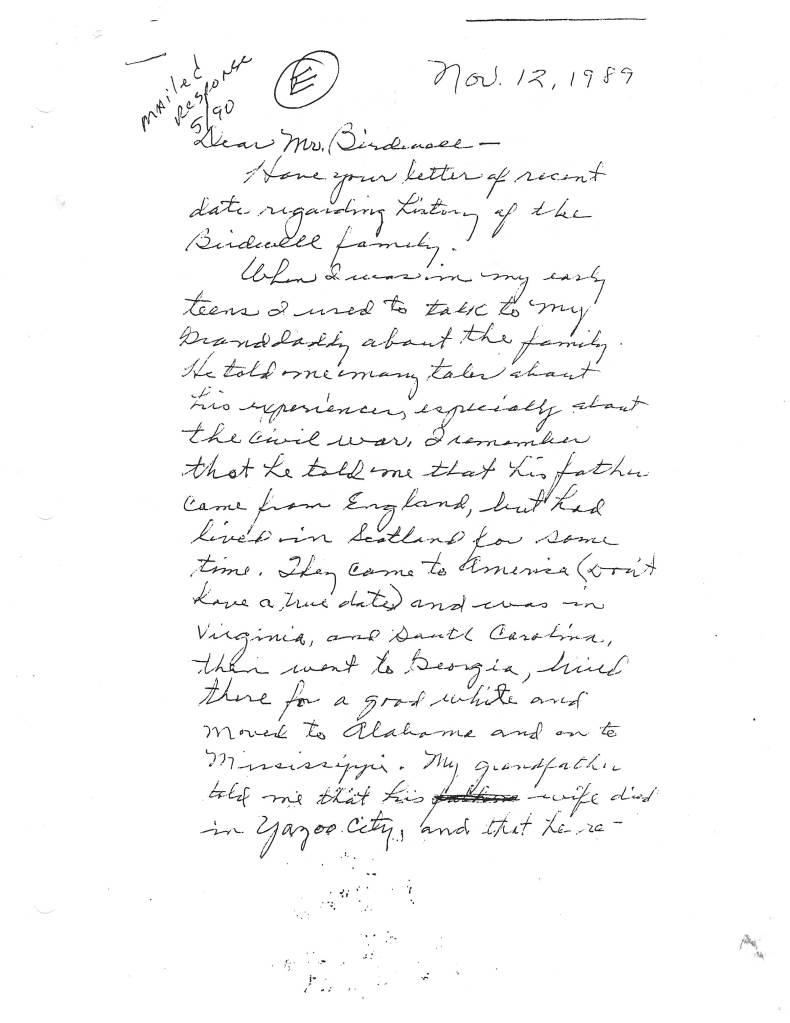 Mailed
Response
5/90
E
Nov. 12, 1989
Dear Mr. Birdwell —
Have your letter of recent
date regarding history of the
Birdwell family.
When I was in my early
teens I used to talk to my
Granddaddy about the family.
He told me many tales about
his experiences, especially about
the civil war. I remember
that he told me that his father
came from England, but had
lived in Scotland for some
time. They came to America (Don't
have a true date) and was in
Virginia, and South Carolina,
then went to Georgia, lived
there for a good white and
moved to Alabama and on to
Mississippi. My grandfather
told me that his wife died
in Yazoo City, and that he re-